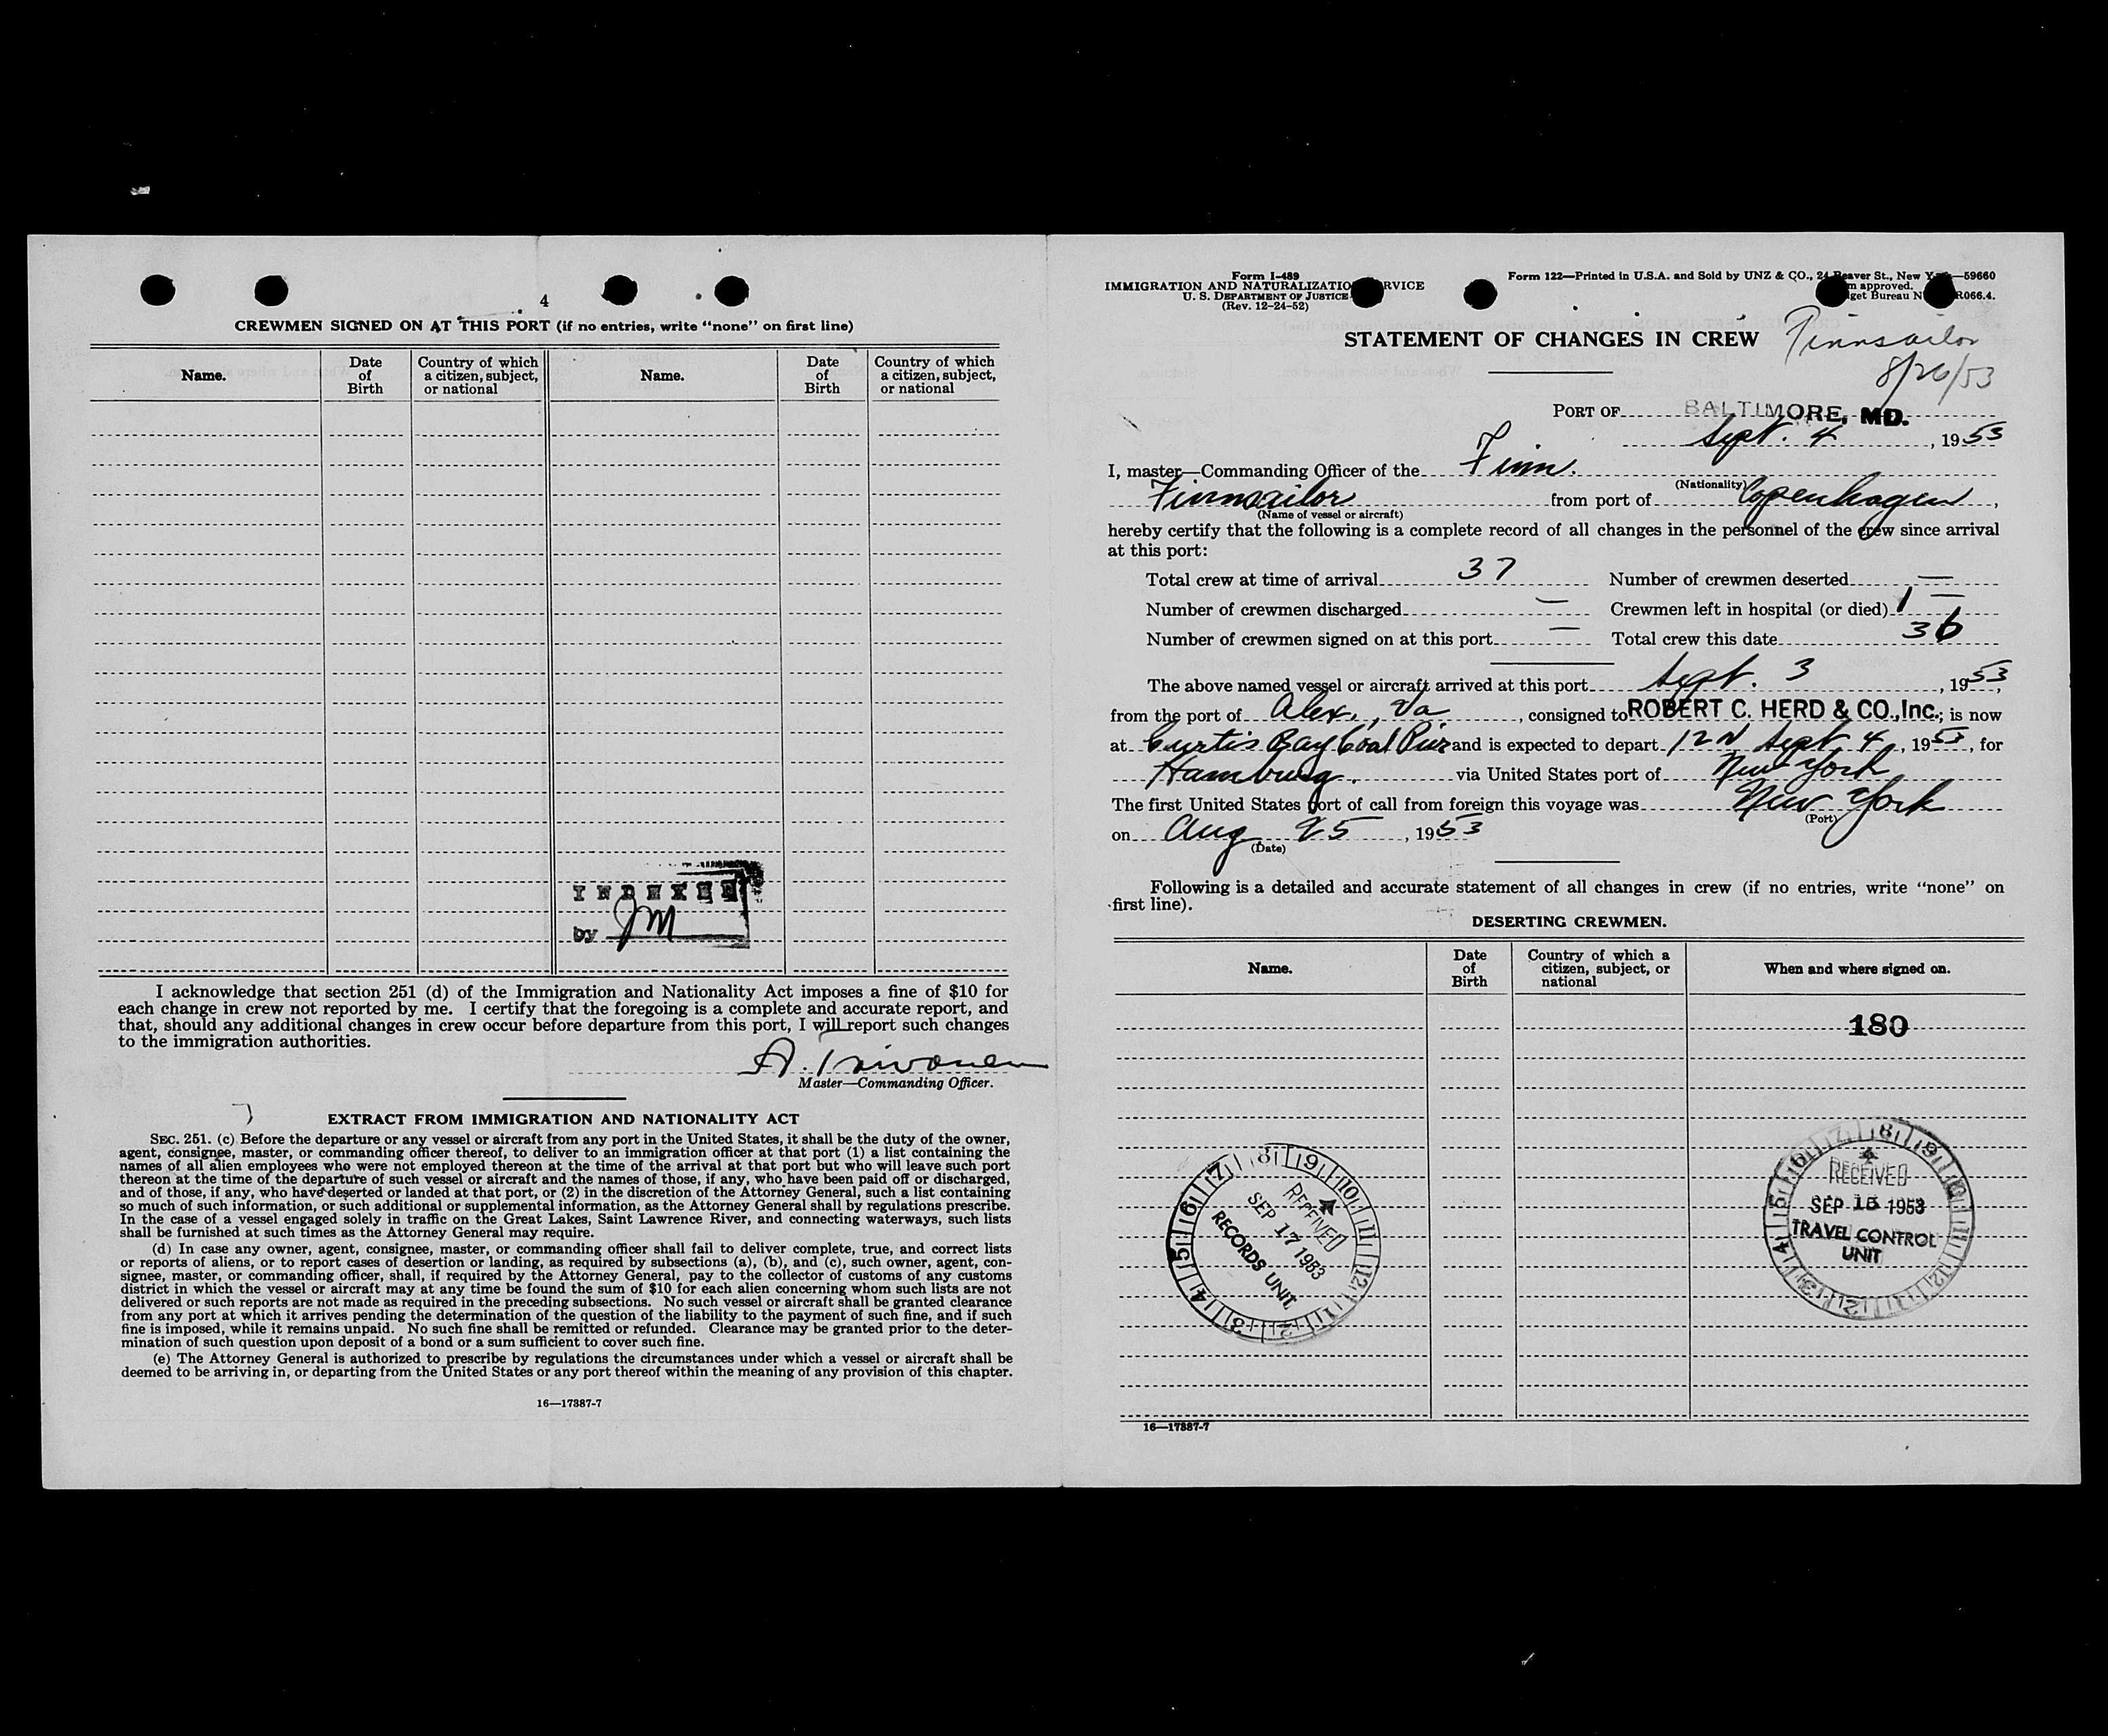 4
CREWMEN SIGNED ON AT THIS PORT (if no entries, write "none" on first line)
Name.
Date of Birth
Country of which a citizen, subject, or national
Name.
Date of Birth
Country of which a citizen, subject, or national
INDEXED
by JM
I acknowledge that section 251 (d) of the Immigration and Nationality Act imposes a fine of $10 for
each change in crew not reported by me. I certify that the foregoing is a complete and accurate report, and
that, should any additional changes in crew occur before departure from this port, I will report such changes
to the immigration authorities.
A.
Master—Commanding Officer.
EXTRACT FROM IMMIGRATION AND NATIONALITY ACT
SEC. 251. (c) Before the departure or any vessel or aircraft from any port in the United States, it shall be the duty of the owner,
agent, consignee, master, or commanding officer thereof, to deliver to an immigration officer at that port (1) a list containing the
names of all alien employees who were not employed thereon at the time of the arrival at that port but who will leave such port
thereon at the time of the departure of such vessel or aircraft and the names of those, if any, who have been paid off or discharged,
and of those, if any, who have deserted or landed at that port, or (2) in the discretion of the Attorney General, such a list containing
so much of such information, or such additional or supplemental information, as the Attorney General shall by regulations prescribe.
In the case of a vessel engaged solely in traffic on the Great Lakes, Saint Lawrence River, and connecting waterways, such lists
shall be furnished at such times as the Attorney General may require.
(d) In case any owner, agent, consignee, master, or commanding officer shall fail to deliver complete, true, and correct lists
or reports of aliens, or to report cases of desertion or landing, as required by subsections (a), (b), and (c), such owner, agent, con-
signee, master, or commanding officer, shall, if required by the Attorney General, pay to the collector of customs of any customs
district in which the vessel or aircraft may at any time be found the sum of $10 for each alien concerning whom such lists are not
delivered or such reports are not made as required in the preceding subsections. No such vessel or aircraft shall be granted clearance
from any port at which it arrives pending the determination of the question of the liability to the payment of such fine, and if such
fine is imposed, while it remains unpaid. No such fine shall be remitted or refunded. Clearance may be granted prior to the deter-
mination of such question upon deposit of a bond or a sum sufficient to cover such fine.
(e) The Attorney General is authorized to prescribe by regulations the circumstances under which a vessel or aircraft shall be
deemed to be arriving in, or departing from the United States or any port thereof within the meaning of any provision of this chapter.
16—17387-7
Form I-489
IMMIGRATION AND NATURALIZATIO RVICE
U. S. DEPARTMENT OF JUSTICE
(Rev. 12-24-52)
Form 122—Printed in U.S.A. and Sold by UNZ & CO., 24 Beaver St., New Y —59660
m approved.
get Bureau N R066.4.
STATEMENT OF CHANGES IN CREW
Finnsailor
8/26/53
PORT OF BALTIMORE, MD.
Sept. 4, 1953
I, master—Commanding Officer of the Finn.
(Nationality)
Finnsailor from port of Copenhagen,
(Name of vessel or aircraft)
hereby certify that the following is a complete record of all changes in the personnel of the crew since arrival
at this port:
Total crew at time of arrival 37 Number of crewmen deserted —
Number of crewmen discharged — Crewmen left in hospital (or died) 1 —
Number of crewmen signed on at this port — Total crew this date 36
The above named vessel or aircraft arrived at this port Sept. 3, 1953,
from the port of Alex., Va., consigned to ROBERT C. HERD & CO., Inc.; is now
at Curtis Bay Coal Pier and is expected to depart 12 N Sept 4, 1953, for
Hamburg. via United States port of New York
The first United States port of call from foreign this voyage was New York
(Port)
on Aug 25, 1953
(Date)
Following is a detailed and accurate statement of all changes in crew (if no entries, write "none" on
first line).
DESERTING CREWMEN.
Name.
Date of Birth
Country of which a citizen, subject, or national
When and where signed on.
180
7 8 9 10 11 12 1 2 3 4 5 6
RECEIVED
SEP 17 1953
RECORDS UNIT
7 8 9 10 11 12 1 2 3 4 5 6
RECEIVED
SEP 15 1953
TRAVEL CONTROL
UNIT
16—17387-7